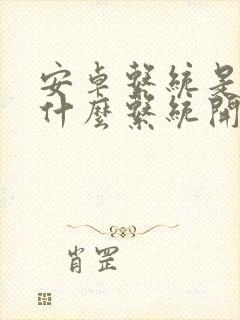 安卓繫統是
什麼繫統開
肖罡